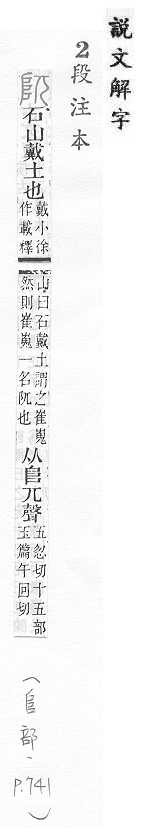 説文解字
2段注本
阢石山戴土也戴小徐作載釋山曰石戴土謂之崔嵬然則崔嵬一名阢也从𨸏兀聲五忽切十五部玉篇午回切(𨸏部、P.741)